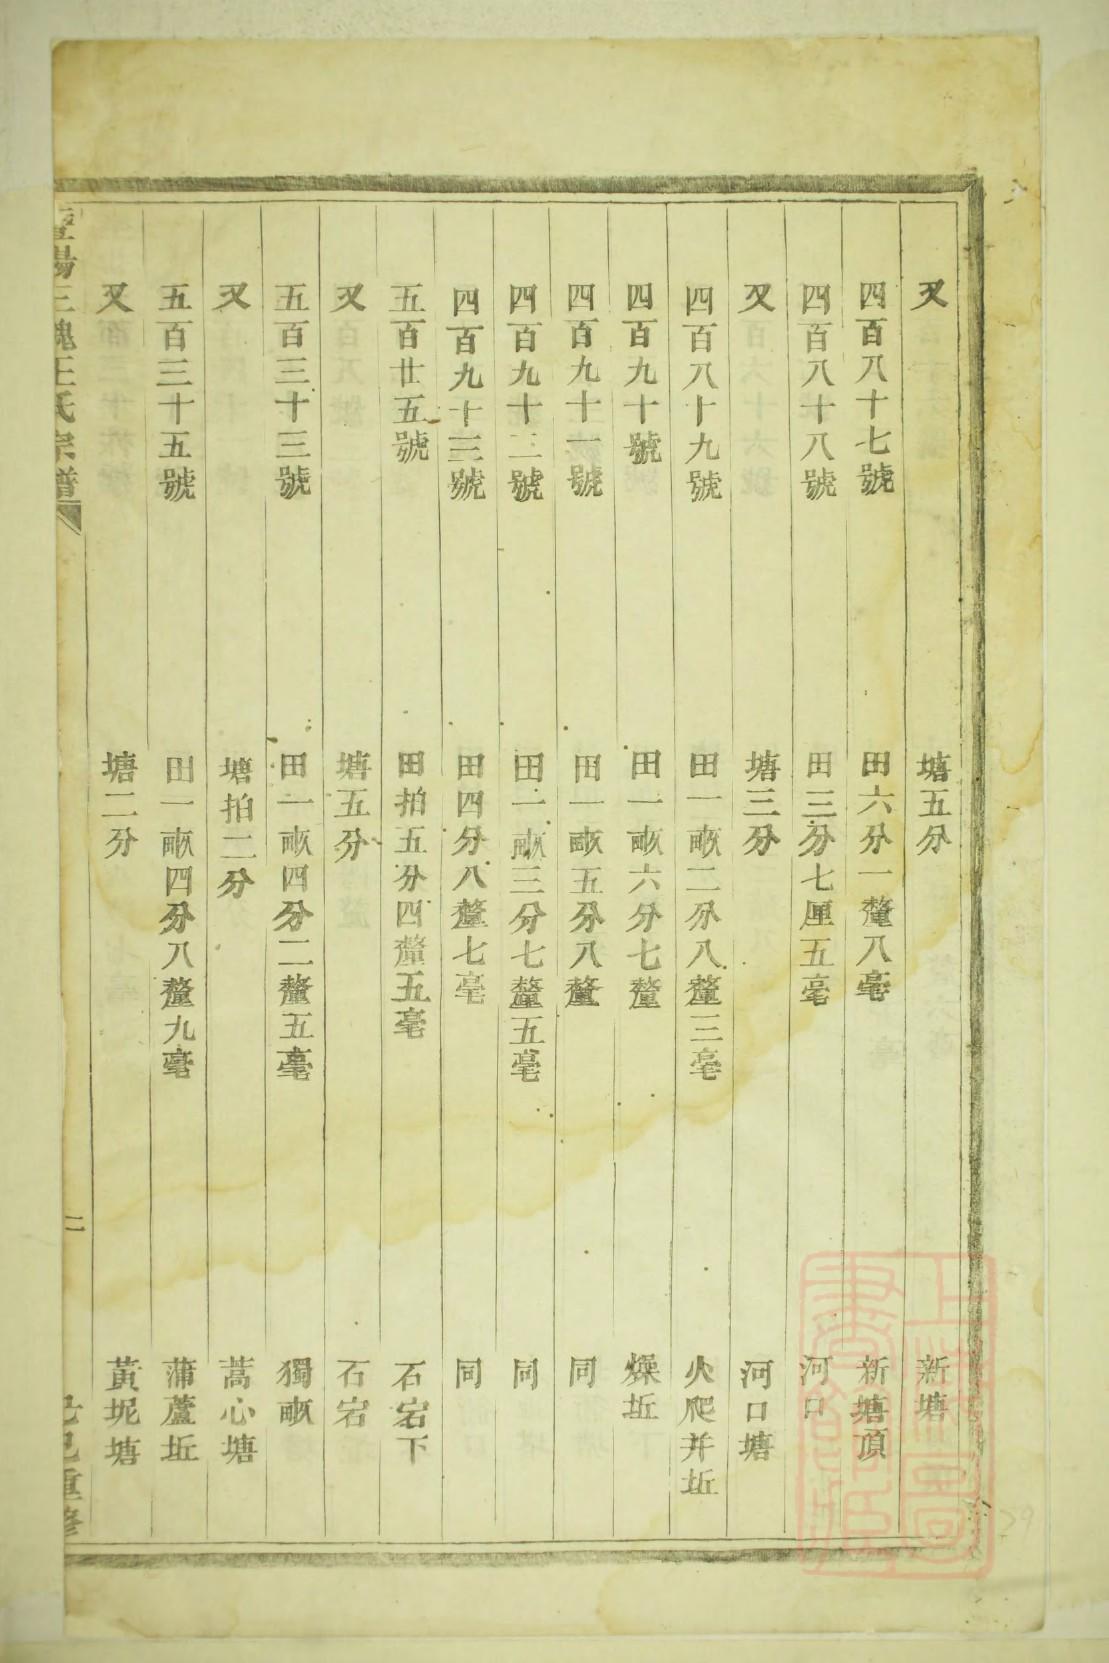 又 塘五分 新塘
四百八十七號 田六分一釐八毫 新塘頂
四百八十八號 田三分七厘五毫 河口
又 塘三分 河口塘
四百八十九號 田一畝二分八釐三毫 火爬井坵
四百九十號 田一畝六分七釐 燥坵
四百九十一號 田一畝五分八釐 同
四百九十二號 田一畝三分七釐五毫 同
四百九十三號 田四分八釐七毫 同
五百廿五號 田拍五分四釐五毫 石宕下
又 塘五分 石宕
五百三十三號 田一畝四分二釐五毫 獨畝
又 塘拍二分 蒿心塘
五百三十五號 田一畝四分八釐九毫 蒲蘆坵
又 塘二分 黃坭塘
王氏宗譜 二 己巳重修
上海圖書館藏